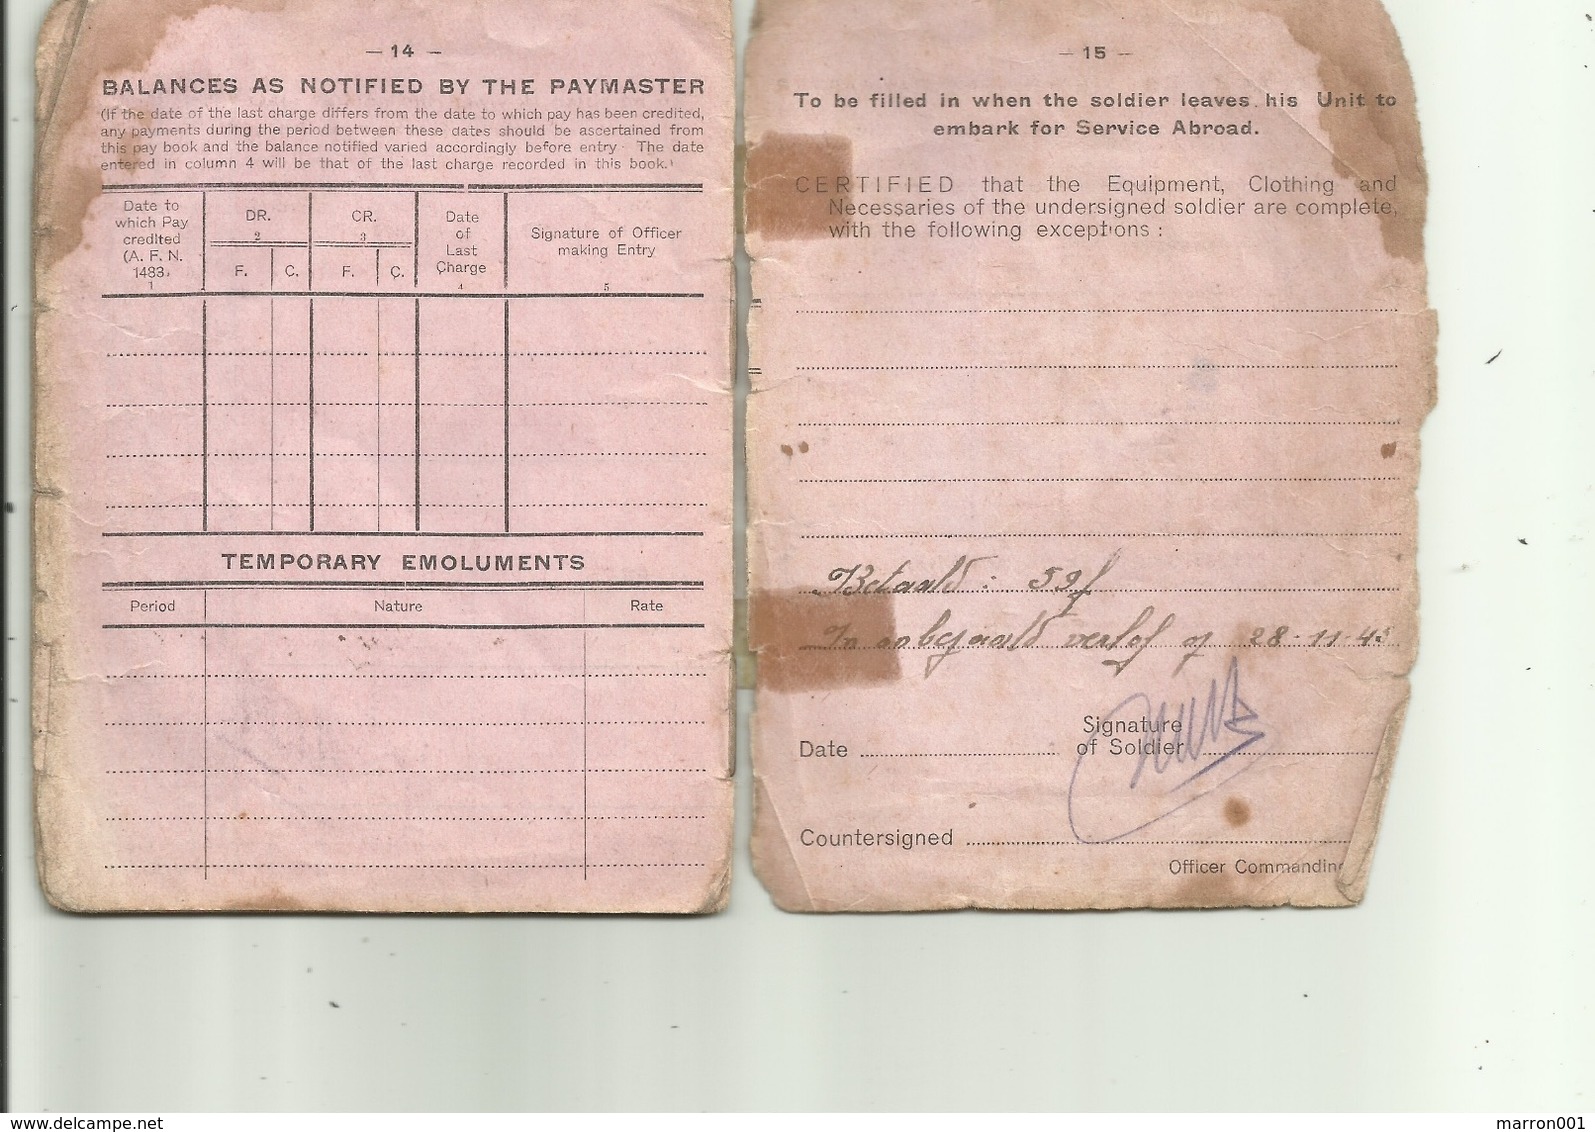 — 14 —
BALANCES AS NOTIFIED BY THE PAYMASTER
(If the date of the last charge differs from the date to which pay has been credited,
any payments during the period between these dates should be ascertained from
this pay book and the balance notified varied accordingly before entry. The date
entered in column 4 will be that of the last charge recorded in this book.)
Date to
which Pay
credited
(A. F. N.
1483)
1
DR.
2
F. C.
CR.
3
F. C.
Date
of
Last
Charge
4
Signature of Officer
making Entry
5
TEMPORARY EMOLUMENTS
Period Nature Rate
— 15 —
To be filled in when the soldier leaves his Unit to
embark for Service Abroad.
CERTIFIED that the Equipment, Clothing and
Necessaries of the undersigned soldier are complete,
with the following exceptions :
Betaald : 59f
In onbepaald verlof op 28-11-45
Date
Signature
of Soldier
Countersigned
Officer Commanding
www.delcampe.net
marron001